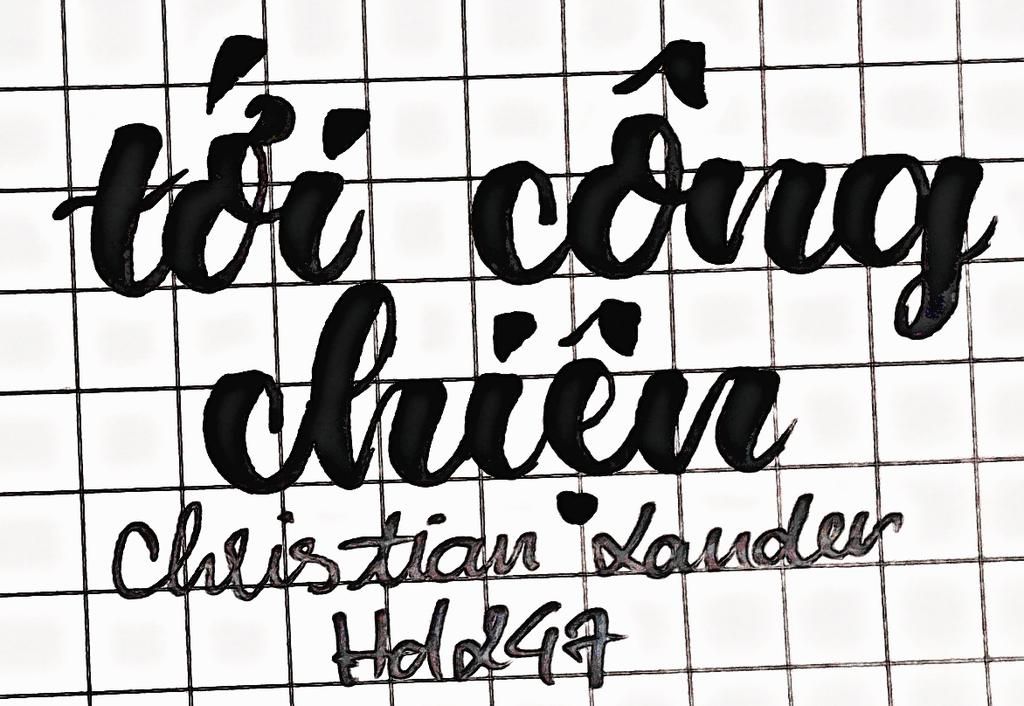 tới công
chiện
Christian Lander
Hd247